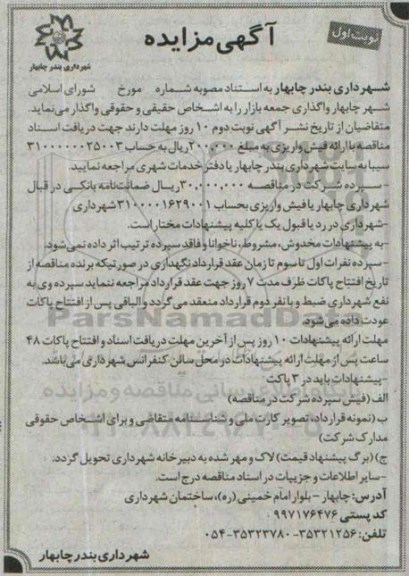 نوبت اول
آگهی مزایده
شهرداری بندر چابهار
شهرداری بندر چابهار به استناد مصوبه شماره مورخ شورای اسلامی
شهر چابهار واگذاری جمعه بازار را به اشخاص حقیقی و حقوقی واگذار می‌نماید.
متقاضیان از تاریخ نشر آگهی نوبت دوم ۱۰ روز مهلت دارند جهت دریافت اسناد
مناقصه با ارائه فیش واریزی به مبلغ ۲۰۰,۰۰۰ ریال به حساب ۳۱۰۰۰۰۰۰۲۵۰۰۳
سیبا به سایت شهرداری بندر چابهار یا دفتر خدمات شهری مراجعه نمایند.
-سپرده شرکت در مناقصه ۳۰.۰۰۰.۰۰۰ ریال ضمانت‌نامه بانکی در قبال
شهرداری چابهار یا فیش واریزی بحساب ۳۱۰۰۰۰۱۶۲۹۰۰۱ شهرداری
-شهرداری در رد یا قبول یک یا کلیه پیشنهادات مختار است.
-به پیشنهادات مخدوش، مشروط، ناخوانا و فاقد سپرده ترتیب اثر داده نمی‌شود.
-سپرده نفرات اول تا سوم تا زمان عقد قرارداد نگهداری در صورتیکه برنده مناقصه از
تاریخ افتتاح پاکات ظرف مدت ۷ روز جهت عقد قرارداد مراجعه ننماید سپرده وی به
نفع شهرداری ضبط و با نفر دوم قرارداد منعقد می‌گردد و الباقی پس از افتتاح پاکات
عودت داده می‌شود.
مهلت ارائه پیشنهادات ۱۰ روز پس از آخرین مهلت دریافت اسناد و افتتاح پاکات ۴۸
ساعت پس از مهلت ارائه پیشنهادات در محل سالن کنفرانس شهرداری می‌باشد.
-پیشنهادات باید در ۳ پاکت
الف (فیش سپرده شرکت در مناقصه)
ب (نمونه قرارداد، تصویر کارت ملی و شناسنامه متقاضی و برای اشخاص حقوقی
مدارک شرکت)
ج) (برگ پیشنهاد قیمت) لاک و مهر شده به دبیرخانه شهرداری تحویل گردد.
-سایر اطلاعات و جزییات در اسناد مناقصه درج است.
آدرس: چابهار - بلوار امام خمینی (ره)، ساختمان شهرداری
کد پستی ۹۹۷۱۷۶۴۷۶
تلفن: ۳۵۳۲۱۲۵۶-۳۵۳۲۳۷۸۰-۰۵۴
شهرداری بندر چابهار
ParsNamadData